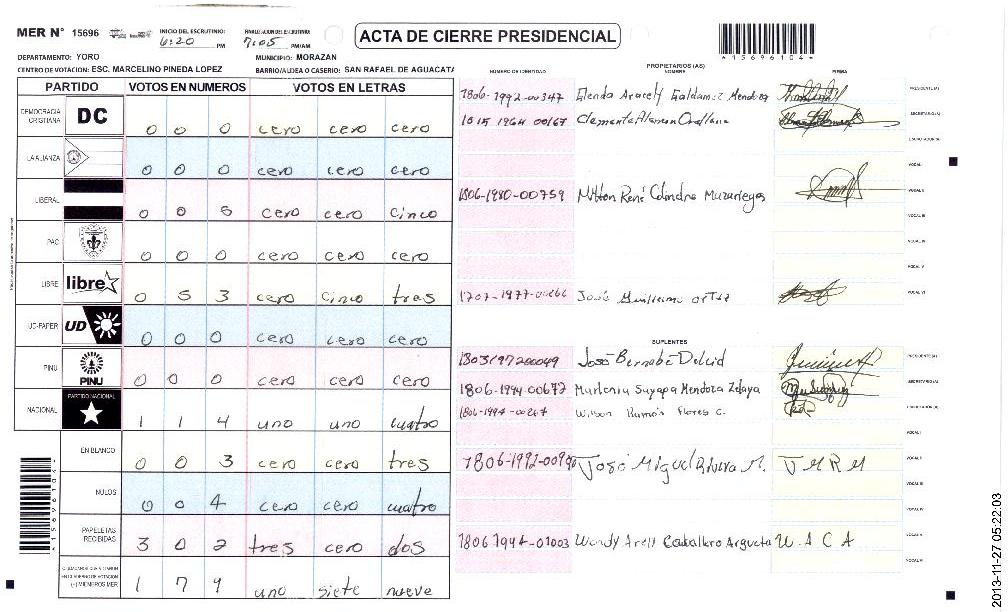 MER N° 15696
INICIO DEL ESCRUTINIO: 6:20 PM
FINALIZACION DEL ESCRUTINIO: 7:05 PM/AM
ACTA DE CIERRE PRESIDENCIAL
15696104
DEPARTAMENTO: YORO
MUNICIPIO: MORAZAN
CENTRO DE VOTACION: ESC. MARCELINO PINEDA LOPEZ
BARRIO/ALDEA O CASERIO: SAN RAFAEL DE AGUACATA
PARTIDO VOTOS EN NUMEROS VOTOS EN LETRAS
DEMOCRACIA CRISTIANA DC 0 0 0 cero cero cero
LA ALIANZA 0 0 0 cero cero cero
LIBERAL 0 0 5 cero cero cinco
PAC 0 0 0 cero cero cero
LIBRE libre 0 5 3 cero cinco tres
UD-FAPER UD 0 0 0 cero cero cero
PINU PINU 0 0 0 cero cero cero
NACIONAL PARTIDO NACIONAL 1 1 4 uno uno cuatro
EN BLANCO 0 0 3 cero cero tres
NULOS 0 0 4 cero cero cuatro
PAPELETAS RECIBIDAS 3 0 2 tres cero dos
CIUDADANOS QUE VOTARON EN CUADERNO DE VOTACION (+) MIEMBROS MER 1 7 9 uno siete nueve
NUMERO DE IDENTIDAD PROPIETARIOS (AS) NOMBRE FIRMA
1806-1992-00347 Glenda Aracely Galdamez Mendoza PRESIDENTE (A)
1015 1964 00167 Clemente Aleman Orellana SECRETARIO (A)
ESCRUTADOR (A)
VOCAL I
1806-1980-00759 Milton René Colindre Mazariegos VOCAL II
VOCAL III
VOCAL IV
VOCAL V
1707-1977-00266 José Guillermo ortiz VOCAL VI
SUPLENTES
1803197200049 José Bernabé Delcid PRESIDENTE (A)
1806-1994-00672 Marlenia Suyapa Mendoza Zelaya SECRETARIO (A)
1806-1994-00267 Wilson Ramón Flores C. ESCRUTADOR (A)
VOCAL I
José Miguel Rivera M. J M R M VOCAL II
VOCAL III
VOCAL IV
1806 1994-01003 Wendy Areli Caballero Argueta W A C A VOCAL V
VOCAL VI
1569610
2013-11-27 05:22:03